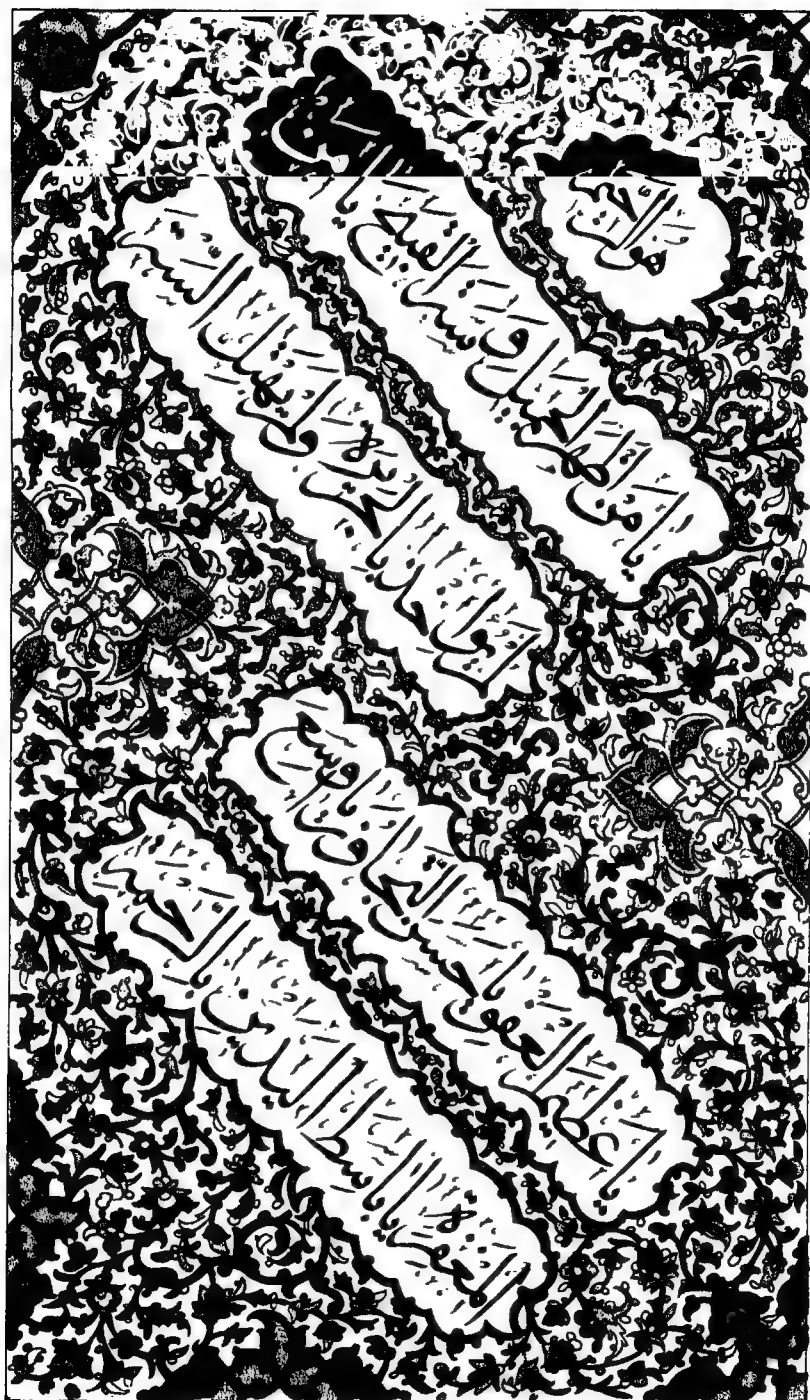 هو
يا مَنْ اَظْهَرَ الْجَميلَ وَ سَتَرَ الْقَبيحَ يا مَنْ
لَمْ يُؤاخِذْ بِالْجَريرَةِ وَلَمْ يَهْتِكِ السِّتْرَ
يا عَظيمَ الْعَفْوِ يا حَسَنَ التَّجاوُزِ يا واسِعَ
الْمَغْفِرَةِ يا باسِطَ الْيَدَيْنِ بِالرَّحْمَةِ